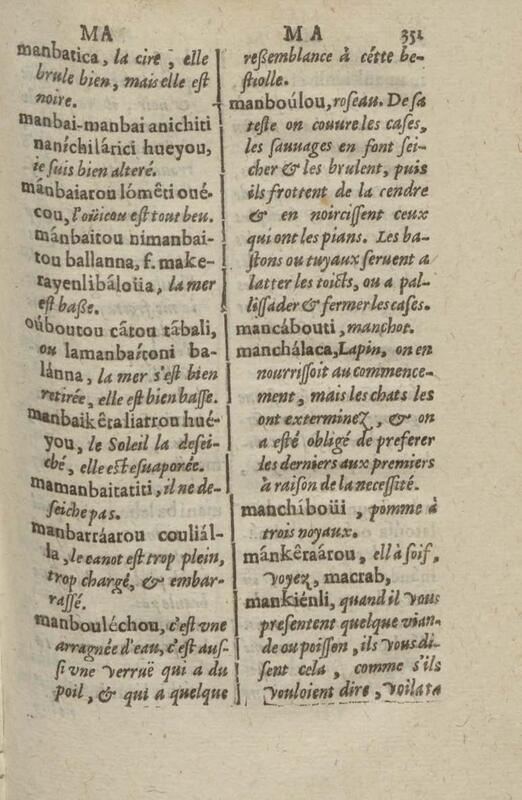 MA
manbatica, la cire, elle
brule bien, mais elle est
noire.
manbai-manbai anichiti
naníchilárici hueyou,
ie suis bien alteré.
mánbaiarou lómêti oué-
cou, l'oüicou est tout beu.
mánbaitou nimanbai-
tou ballanna, f. make-
rayenlibáloüa, la mer
est baße.
oúboutou câtou tâbali,
ou lamanbaítoni ba-
lánna, la mer s'est bien
retirée, elle est bien basse.
manbaikêtaliatrou hué-
you, le Soleil la desei-
ché, elle est esuaporée.
mamanbaitatiti, il ne de-
seiche pas.
manbarráarou couliál-
la, le canot est trop plein,
trop chargé, & embar-
rassé.
manbouléchou, c'est vne
arragnée d'eau, c'est aus-
si vne verruë qui a du
poil, & qui a quelque
MA 351
reßemblance à cétte be-
stiolle.
manboúlou, roseau. De sa
teste on couure les cases,
les sauuages en font sei-
cher & les brulent, puis
ils frottent de la cendre
& en noircissent ceux
qui ont les pians. Les ba-
stons ou tuyaux seruent a
latter les toicts, ou a pal-
lissader & fermer les cases.
mancábouti, manchot.
manchálaca, Lapin, on en
nourrissoit au commence-
ment, mais les chats les
ont exterminez, & on
a esté obligé de preferer
les derniers aux premiers
à raison de la necessité.
manchíboüi, pomme à
trois noyaux.
mánkêraàrou, ell à soif,
voyez, macrab,
mankiénli, quand il vous
presentent quelque vian-
de ou poisson, ils vous di-
sent cela, comme s'ils
vouloient dire, voila ta